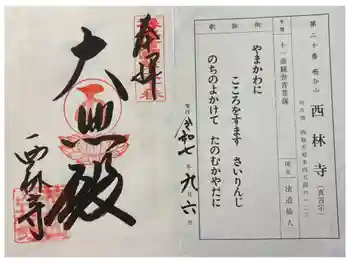 奉拝
大悲殿
西林寺
第二十番
西林寺
(真言宗)
本尊
十一面観音菩薩
開基
法道仙人
御詠歌
やまかわに
こころをすます さいりんじ
のちのよかけて たのむかやだに
令和七年九月六日